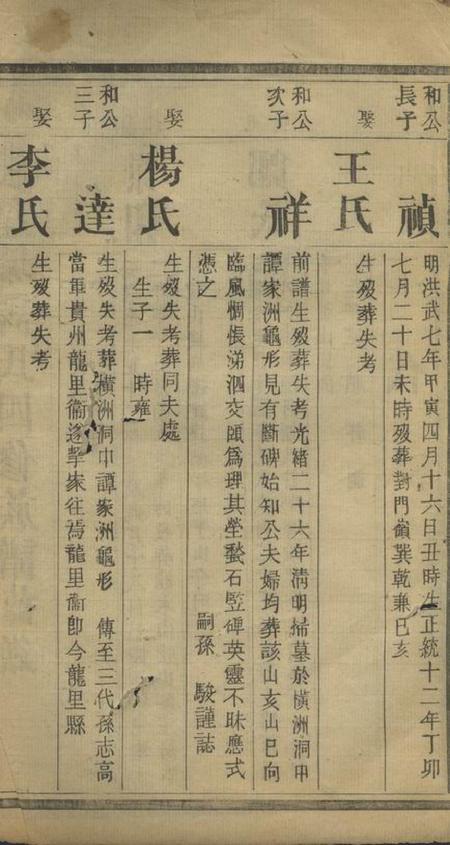 和公
長子
禎
明洪武七年甲寅四月十六日丑時生正統十二年丁卯
七月二十日未時歿葬對門嶺巽乾兼巳亥
娶
王氏
生歿葬失考
和公
次子
祥
前譜生歿葬失考光緒二十六年清明掃墓於橫洲洞甲
譚家洲龜形見有斷碑始知公夫婦均葬該山亥山巳向
臨風惆悵涕泗交頤為理其塋甃石監碑英靈不昧應式
憑之 嗣孫 駿謹誌
娶
楊氏
生歿失考葬同夫處
生子一 時雍
和公
三子
達
生歿失考葬橫洲洞中譚家洲龜形 傳至三代孫志高
當軍貴州龍里衞遂挈家往焉龍里衞卽今龍里縣
娶
李氏
生歿葬失考